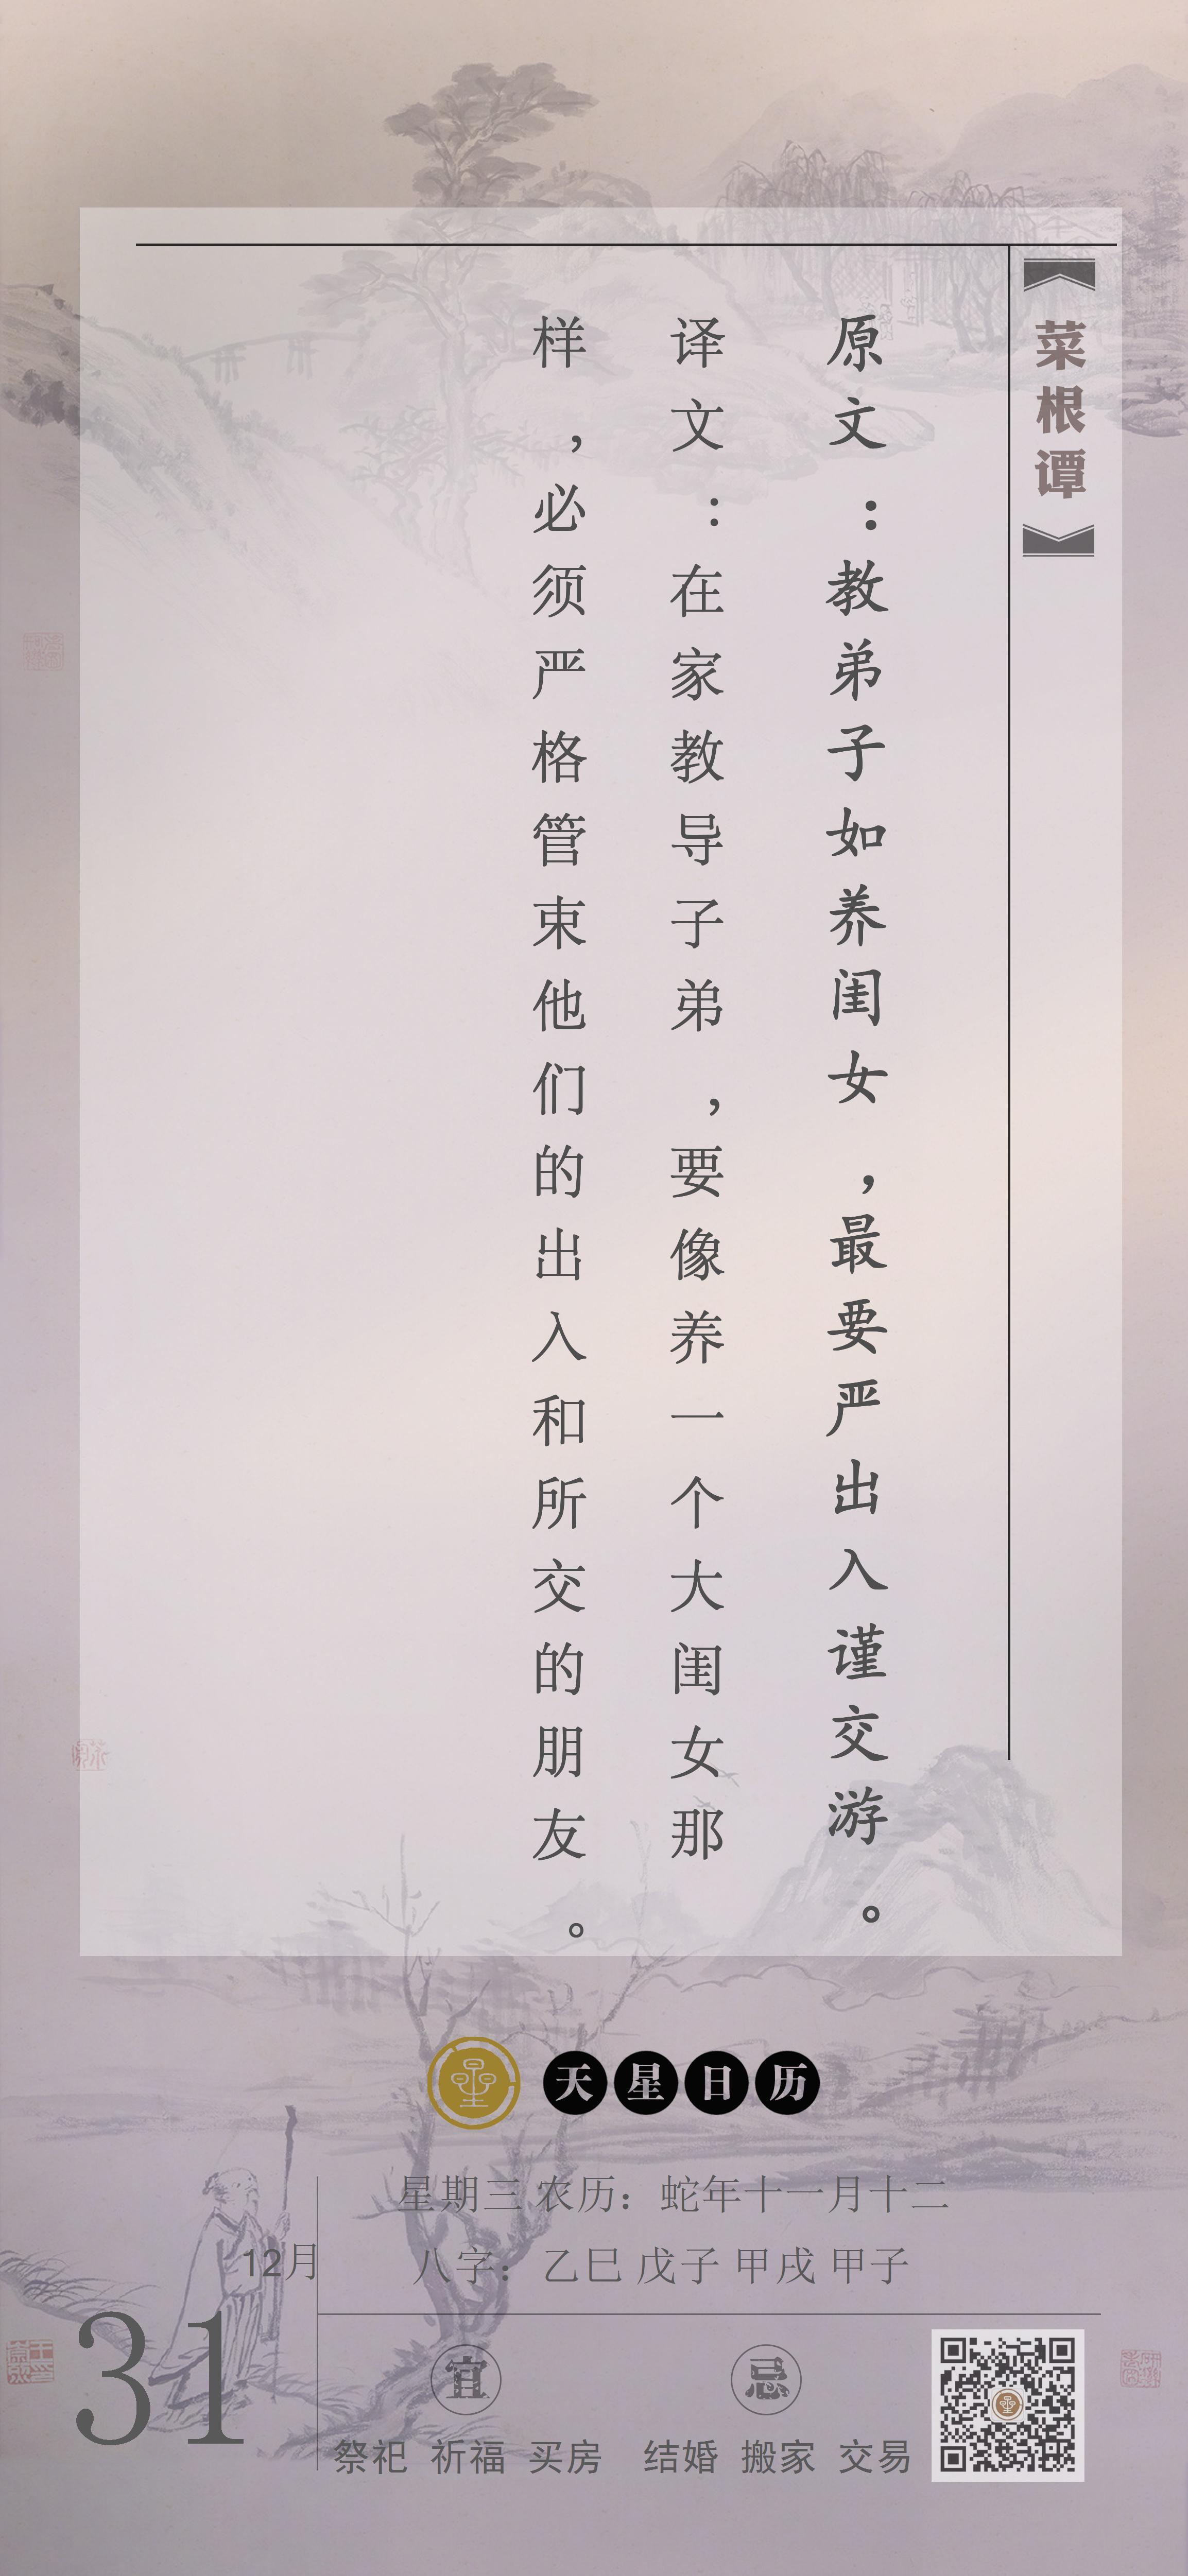 菜根谭
原文：教弟子如养闺女，最要严出入谨交游。
译文：在家教导子弟，要像养一个大闺女那
样，必须严格管束他们的出入和所交的朋友。
天星日历
星期三 农历：蛇年十一月十二
12月
八字：乙巳 戊子 甲戌 甲子
31
宜
忌
祭祀 祈福 买房
结婚 搬家 交易